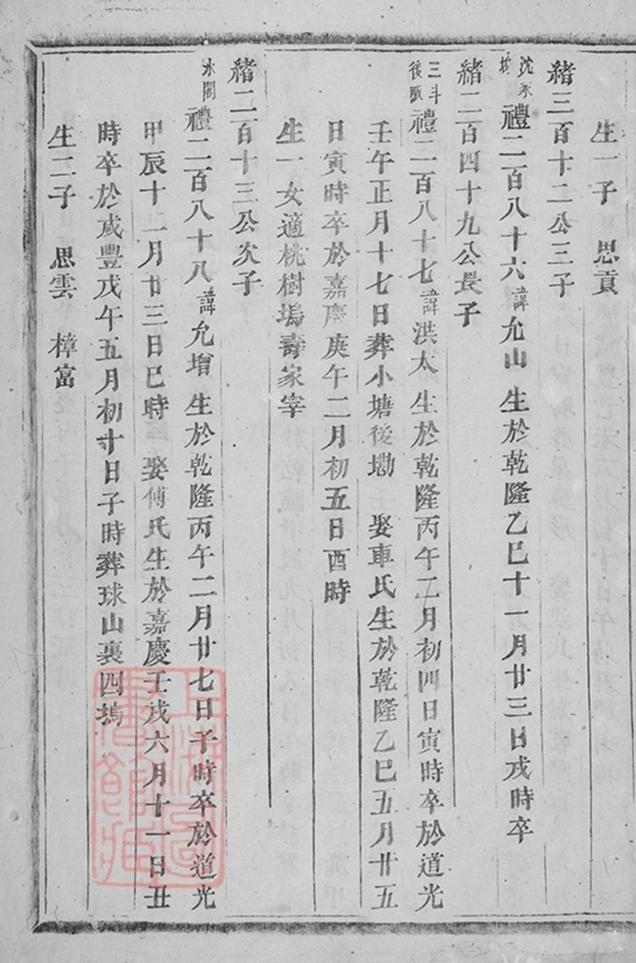 生一子 思貢
緒三百十二公三子
沈家塢 禮二百八十六 諱允山 生於乾隆乙巳十一月廿三日戌時卒
緒二百四十九公長子
三斗後畈 禮二百八十七 諱洪太 生於乾隆丙午二月初四日寅時卒於道光
壬午正月十七日葬小塘後塪 娶車氏生於乾隆乙巳五月廿五
日寅時卒於嘉慶庚午二月初五日酉時
生一女適桃樹塢壽家宰
緒二百十三公次子
水閣 禮二百八十八 諱允增 生於乾隆丙午二月廿七日子時卒於道光
甲辰十一月廿三日巳時 娶傅氏生於嘉慶壬戌六月十一日丑
時卒於咸豐戊午五月初十日子時葬球山裏四塢
生二子 思雲 樟富
上海圖書館藏